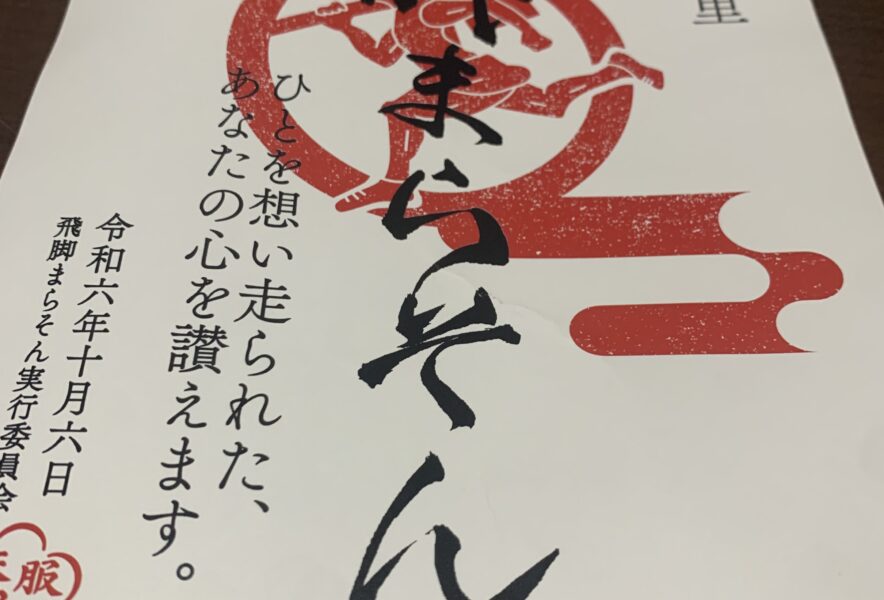 里
まらそん
ひとを想い走られた、
あなたの心を讃えます。
令和六年十月六日
飛脚まらそん実行委員会
服